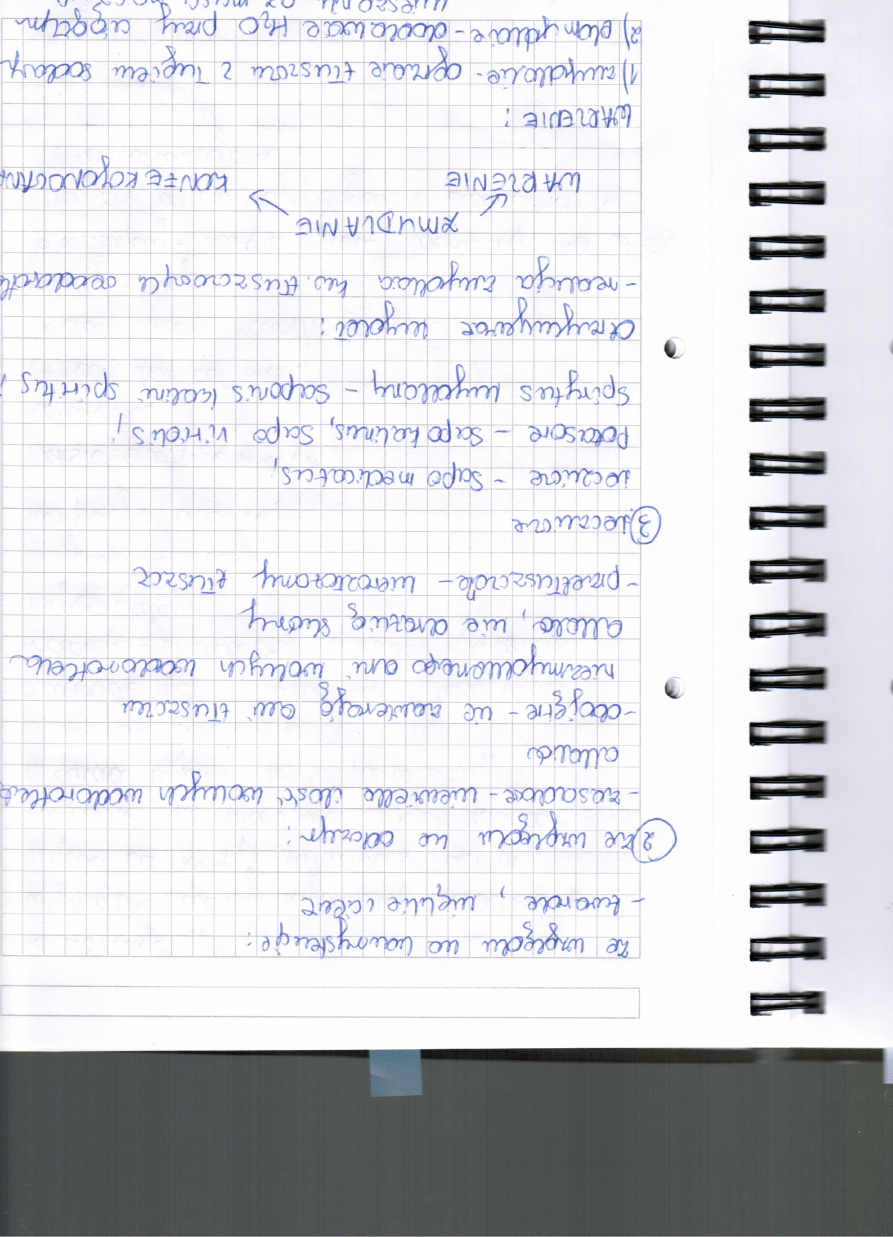 Ze względu na konsystencję:
- twarde, miękkie i ciekłe
② Ze względu na odczyn:
- zasadowe - niewielka ilość wolnych wodorotlen
alkaliów
- obojętne - nie zawierają ani tłuszczu
niezmydlonego ani wolnych wodorotlenk
alkalia, nie drażnią skóry
- przetłuszczone - nierozłożony tłuszcz
③ Lecznicze
lecznicze - Sapo medicatus,
Potasowe - Sapo kalinus, Sapo viridis,
Spirytus mydlany - Saponis kalini spiritus
Otrzymywanie mydeł:
- reakcja zmydlania kw. tłuszczowych
ZMYDLANIE
WARZENIE KONFEKCJONOWANI
WARZENIE:
1) zmydlanie - ogrzanie tłuszczu z ługiem sodowym
2) domydlanie - dodawanie H2O przy ciągłym